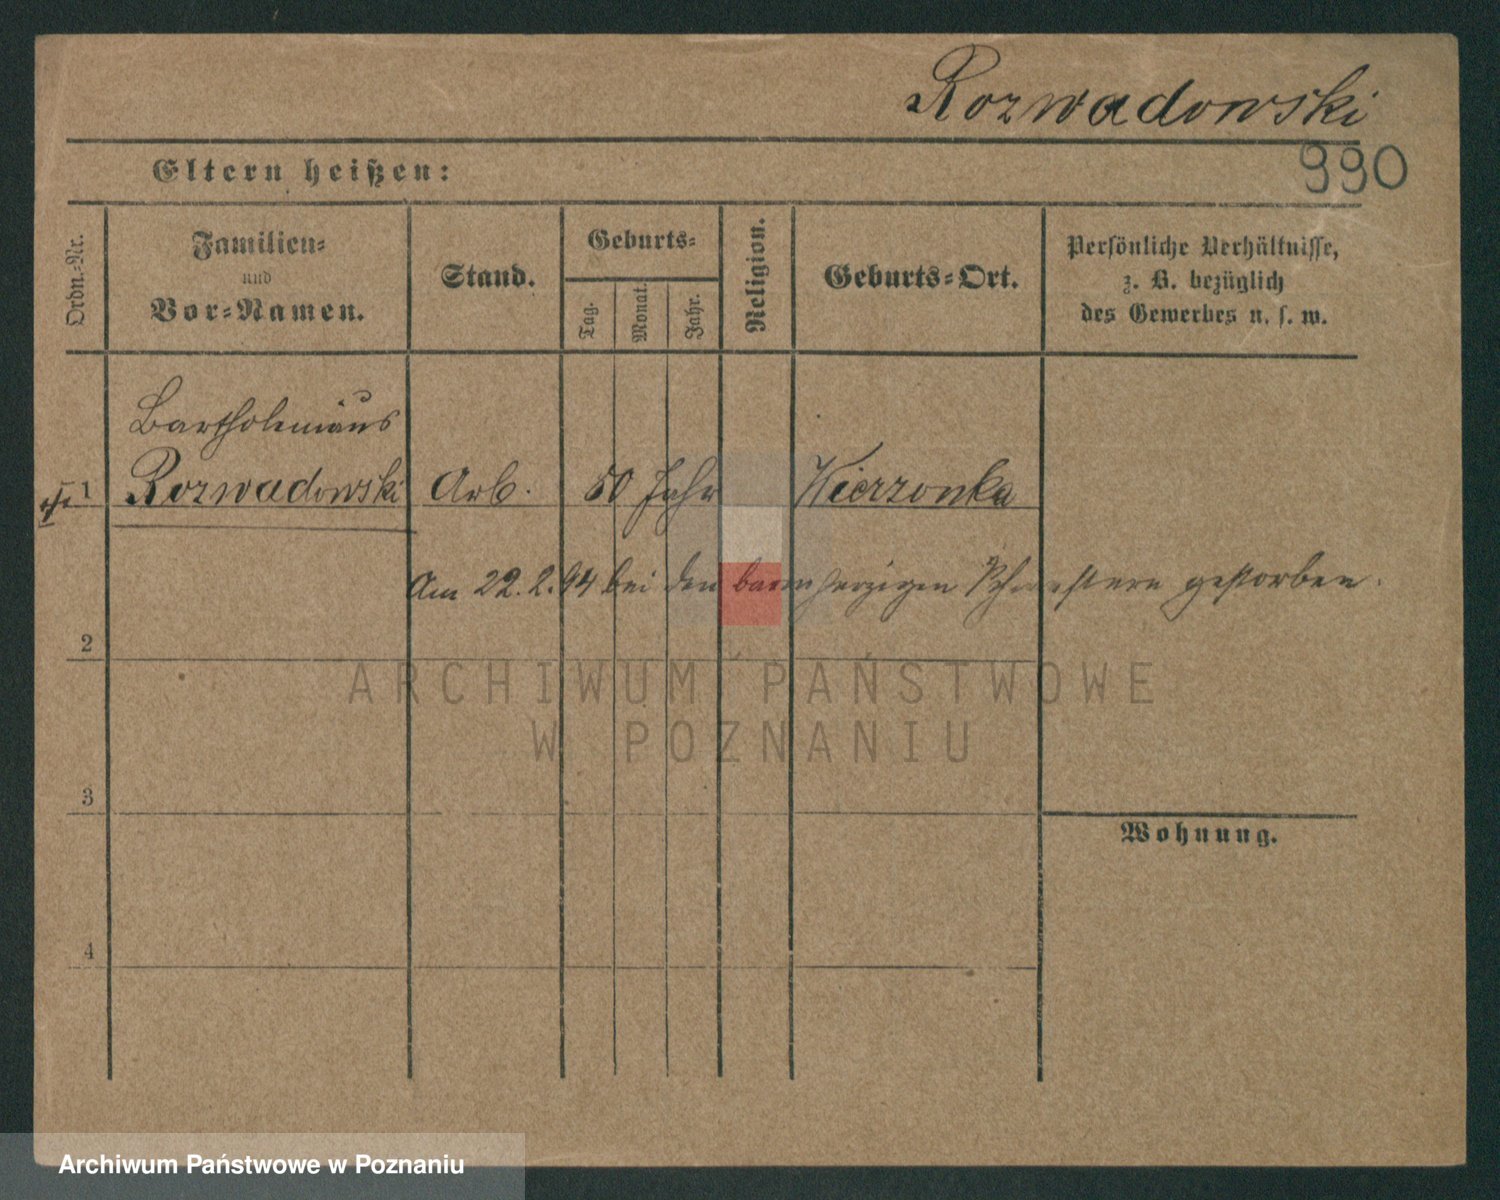 Rozwadowski
990
Eltern heißen:
Ordn.-Nr.
Familien-
und
Vor-Namen.
Stand.
Geburts-
Tag.
Monat.
Jahr.
Religion.
Geburts-Ort.
Persönliche Verhältnisse,
z. B. bezüglich
des Gewerbes u. s. w.
Bartholomäus
1 Rozwadowski Arb. 50 Jahr Wierzonka
Am 22.2.94 bei den barmherzigen Schwestern gestorben.
2
3
Wohnung.
4
ARCHIWUM PAŃSTWOWE
W POZNANIU
Archiwum Państwowe w Poznaniu